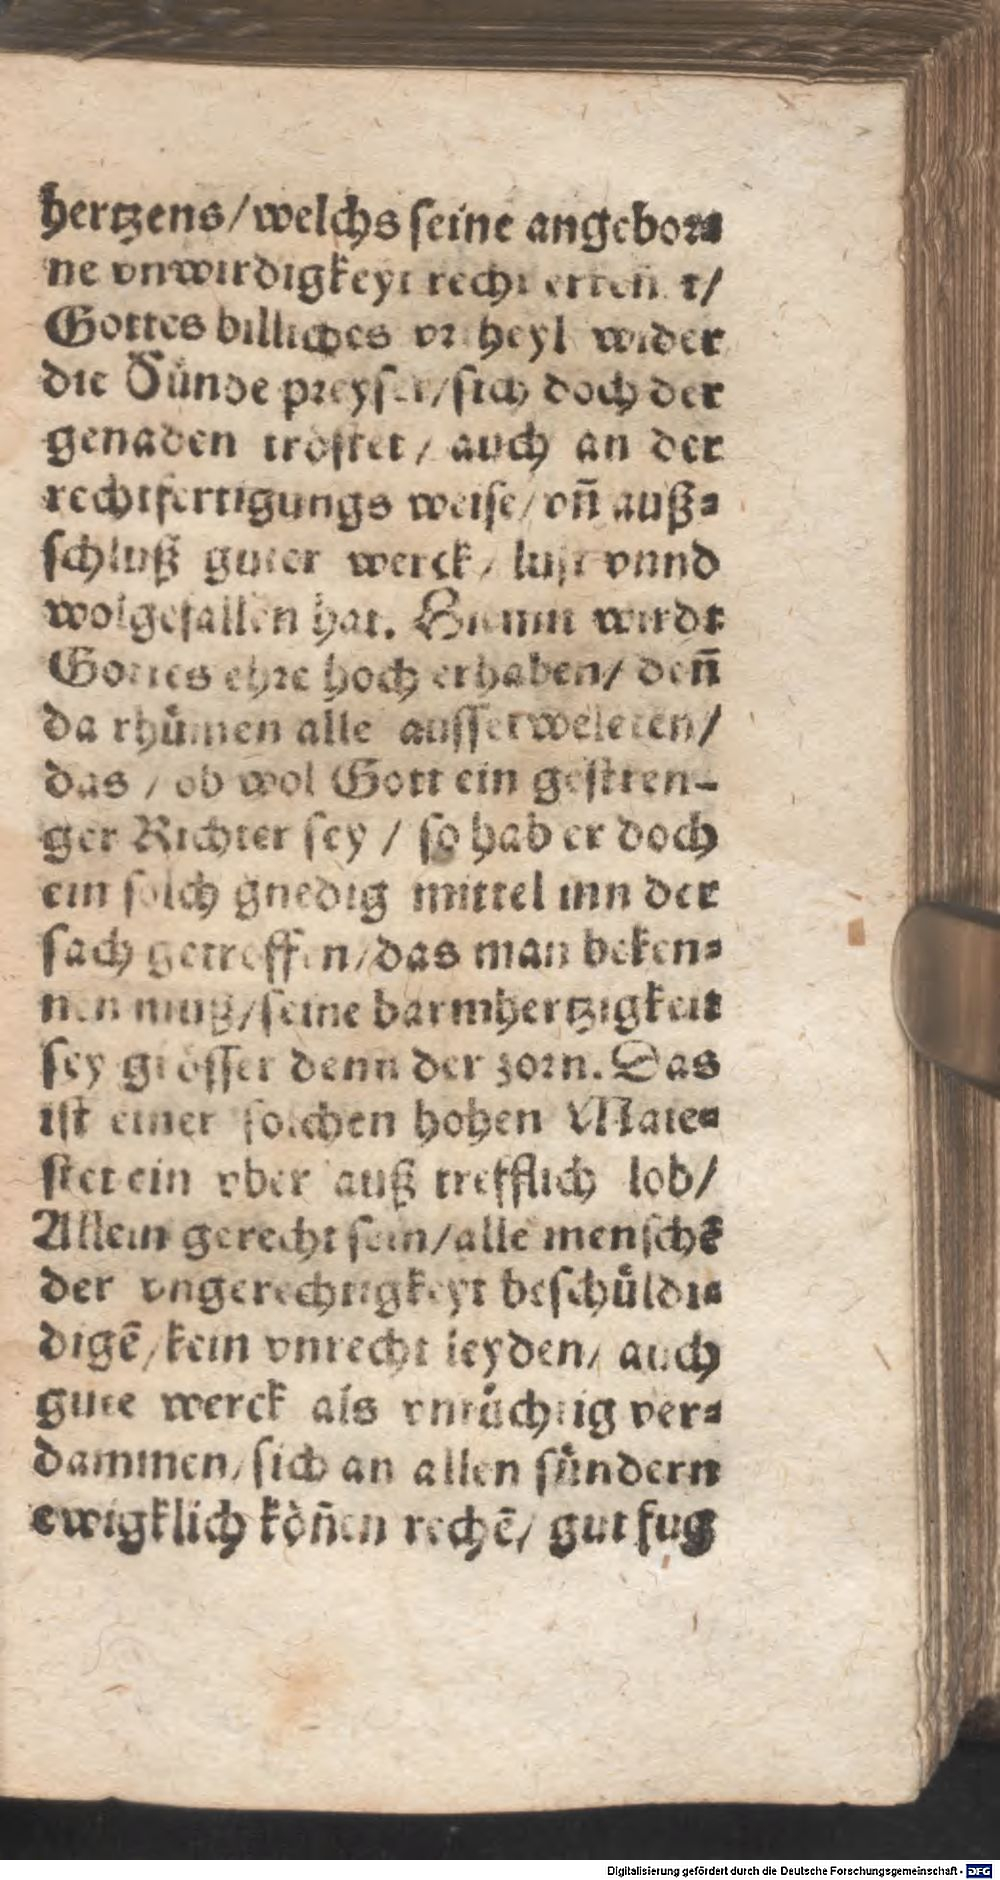 hertzens/welchs seine angebor⸗
ne vnwirdigkeyt recht erkennt/
Gottes billiches vrtheyl wider
die Sünde preyset/sich doch der
genaden tröstet/ auch an der
rechtfertigungs weise/ vn̄ auß⸗
schluß guter werck/ lust vnnd
wolgefallen hat. Hiemit wirdt
Gottes ehre hoch erhaben/ den̄
da rhümen alle ausserweleten/
das / ob wol Gott ein gestren-
ger Richter sey / so hab er doch
ein solch gnedig mittel inn der
sach getroffen/das man beken⸗
nen muß/seine barmhertzigkeit
sey grösser denn der zorn. Das
ist einer solchen hohen Maie⸗
stet ein vber auß trefflich lob/
Allein gerecht sein/alle menschē
der vngerechtigkeyt beschüldi⸗
digē/kein vnrecht leyden/ auch
gute werck als vntüchtig ver⸗
dammen/sich an allen sündern
ewigklich kön̄en rechē/ gut fug
Digitalisierung gefördert durch die Deutsche Forschungsgemeinschaft - DFG